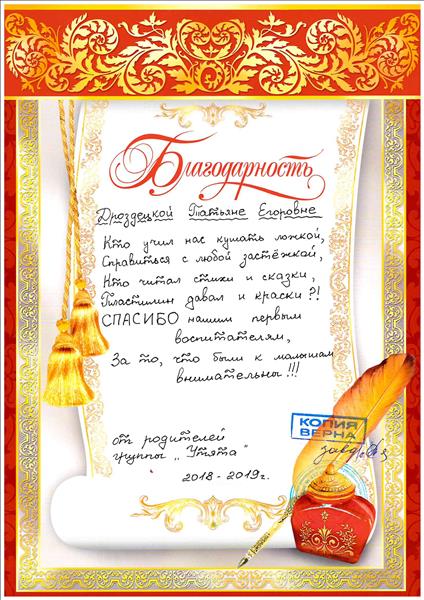 Благодарность
Дроздецкой Татьяне Егоровне
Кто учил нас кушать ложкой,
Справиться с любой застёжкой,
Кто читал стихи и сказки,
Пластилин давал и краски?!
СПАСИБО нашим первым
воспитателям,
За то, что были к малышам
внимательны!!!
от родителей
группы „Утята"
2018-2019г.
КОПИЯ
ВЕРНА